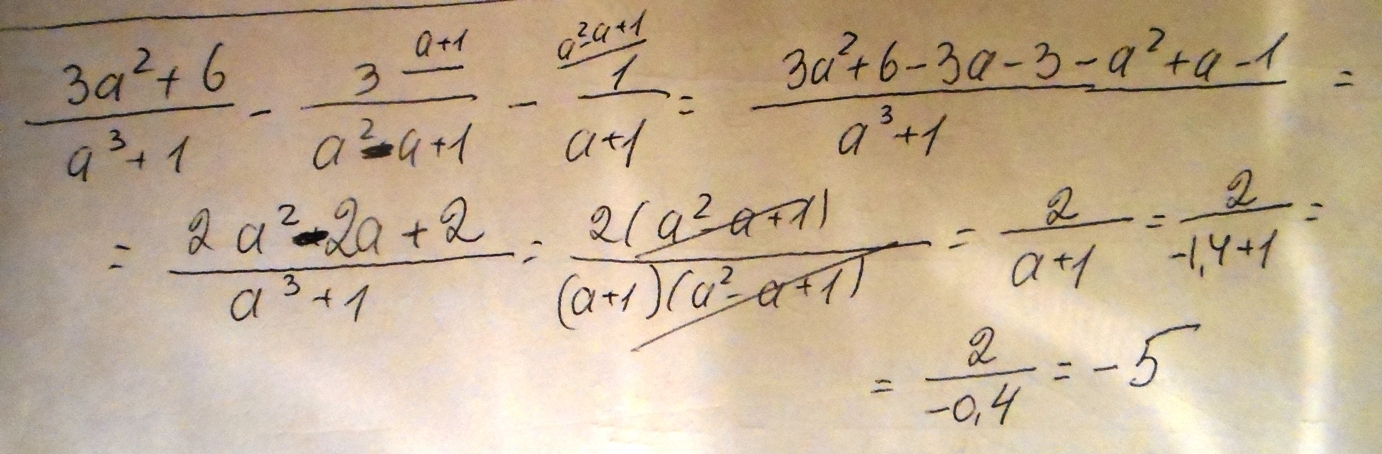 (3a²+6)/(a³+1) - 3^(a+1)/(a²-a+1) - 1^(a²-a+1)/(a+1) = (3a²+6-3a-3-a²+a-1)/(a³+1) =
= (2a²-2a+2)/(a³+1) = 2(a²-a+1)/((a+1)(a²-a+1)) = 2/(a+1) = 2/(-1,4+1) =
= 2/(-0,4) = -5